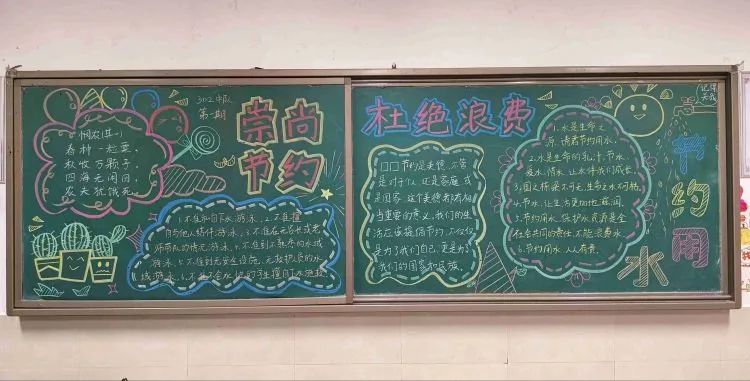 302中队
第一期
崇尚
节约
悯农(其一)
春种一粒粟,
秋收万颗子。
四海无闲田,
农夫犹饿死。
1.不私自下水游泳。2.不擅
自与他人结伴游泳。3.不在无家长或老
师带队的情况游泳。4.不到不熟悉的水域
游泳。5.不到无安全设施、无救护员的水
域游泳。6.不会水性的学生擅自下水施救。
杜绝浪费
节约是美德,不管
是对于个人,还是家庭或
是国家,这个美德都有相
当重要的意义。我们的生
活应该提倡节约,不仅仅
是为了我们自己,更是为了
我们的国家和民族。
1.水是生命之
源,请君节约用水。
2.水是生命的乳汁,节水、
爱水、惜水,让水伴我们成长。
3.国之栋梁不可无,生命之水不可枯。
4.节水,让生活更加他麻润。
5.节约用水,保护水资源是全
社会共同的责任,不能浪费水
6.节约用水,人人有责。
记得
关我
节约用水